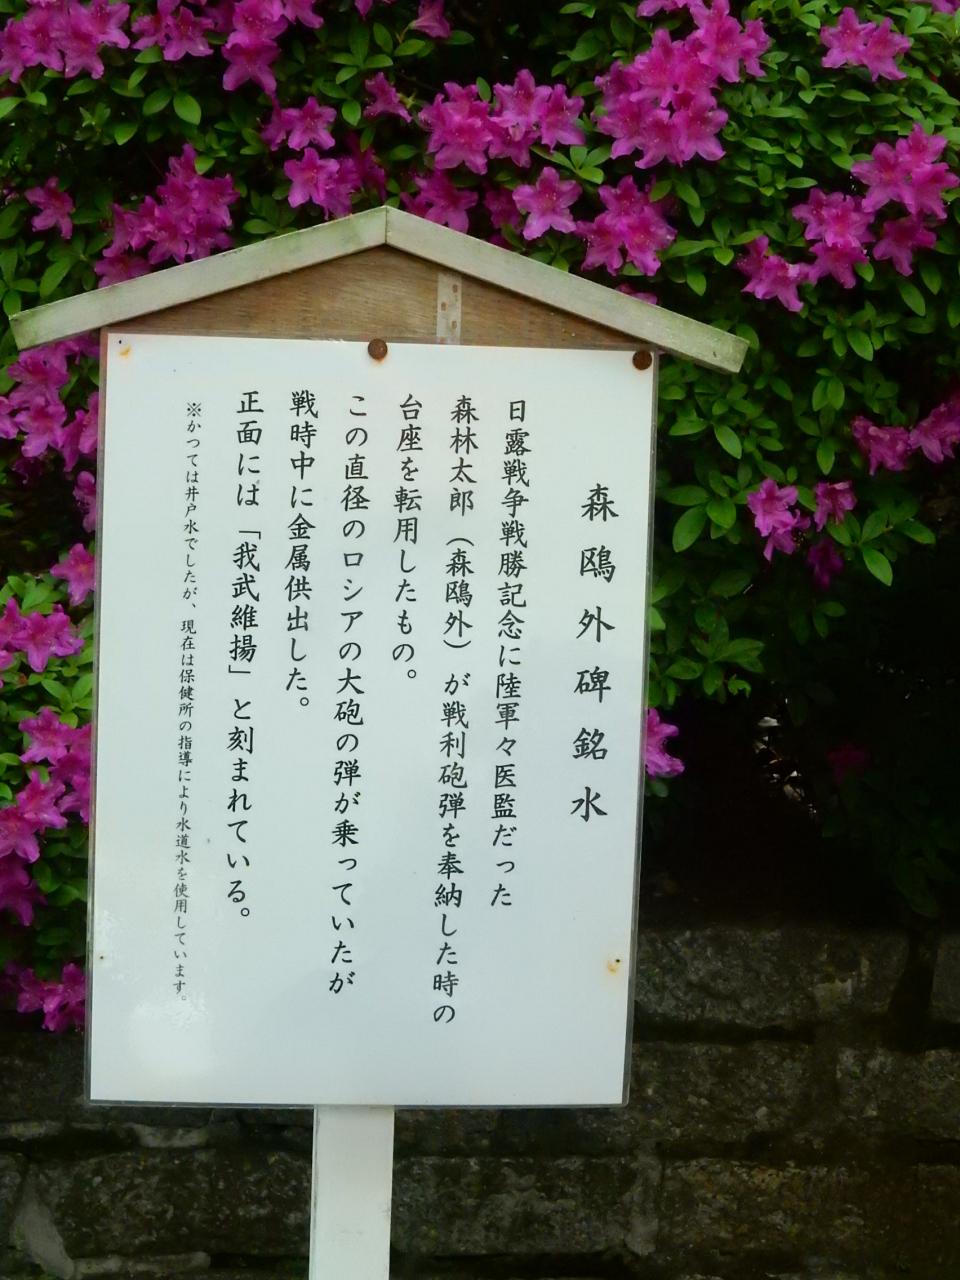 森鷗外碑銘水
日露戦争戦勝記念に陸軍々医監だった
森林太郎（森鷗外）が戦利砲弾を奉納した時の
台座を転用したもの。
この直径のロシアの大砲の弾が乗っていたが
戦時中に金属供出した。
正面には「我武維揚」と刻まれている。
※かつては井戸水でしたが、現在は保健所の指導により水道水を使用しています。